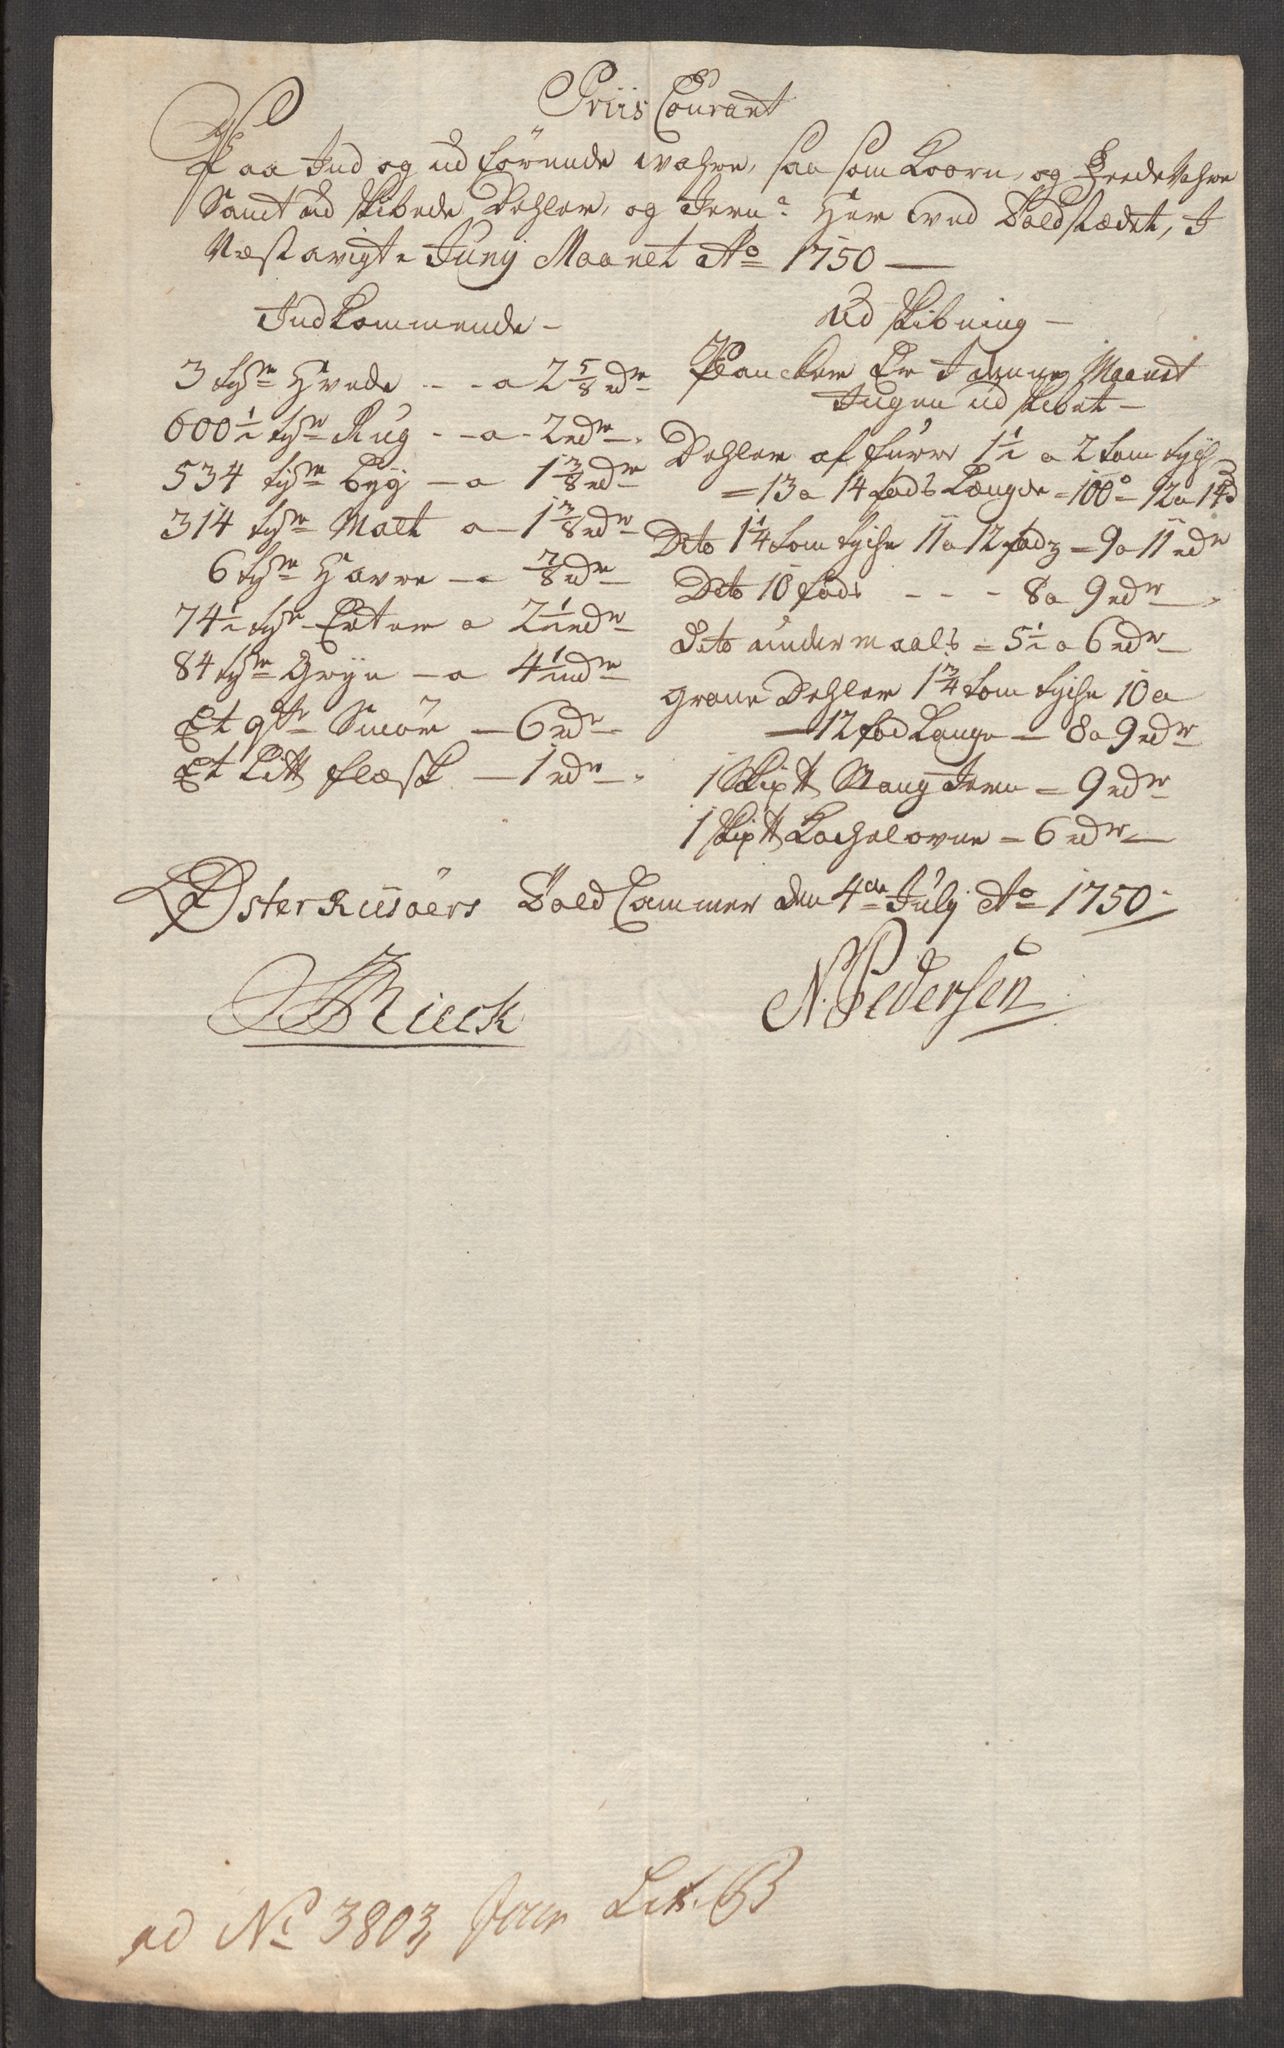 Priis Courant
Paa Ind og ud förende Wahre, saa som Koorn, og Feede Vahre
Samt ud skibede Dehler, og Jern. Her ved Toldstædet, I
Næstavigte Junij Maanet Ao 1750
Indkommende
3 tdr Hvede - - a 2 5/8 rdr
600 1/2 tdr Rug - - a - 2 rdr
534 tdr Byg - a 1 3/8 rdr
314 tdr Malt a - 1 3/8 rdr
6 tdr Havre - a 7/8 rdr
74 1/2 tdr Erter a 2 1/2 rdr
84 tdr Gryn - a 4 1/2 rdr
Et qtr Smör - 6 rdr
Et Litt flæsk - 1 rdr
Ud skibning
Plancker Er I denne Maanet
Ingen ud skibet
Dehler af furre 1 1/2 a 2 tom tych
= 13 a 14 fods Længde = 100 - 12 a 14
Dito 1 1/4 tom tyche 11 a 12 fods = 9 a 11 rdr
Dito 10 fods - - - 8 a 9 rdr
Dito under maals = 5 1/2 a 6 rdr
grane Dehler 1 3/4 tom tyche 10 a
- 12 fod Lange - 8 a 9 rdr
1 Skip tt Stang Jern = 9 rdr
1 Skip tt Kachelovne = 6 rdr
Öster Riisöers Told Cammer den 4de Julij Ao 1750
Rieck
N. Pedersen
ad No 3803 Jour Litr. B